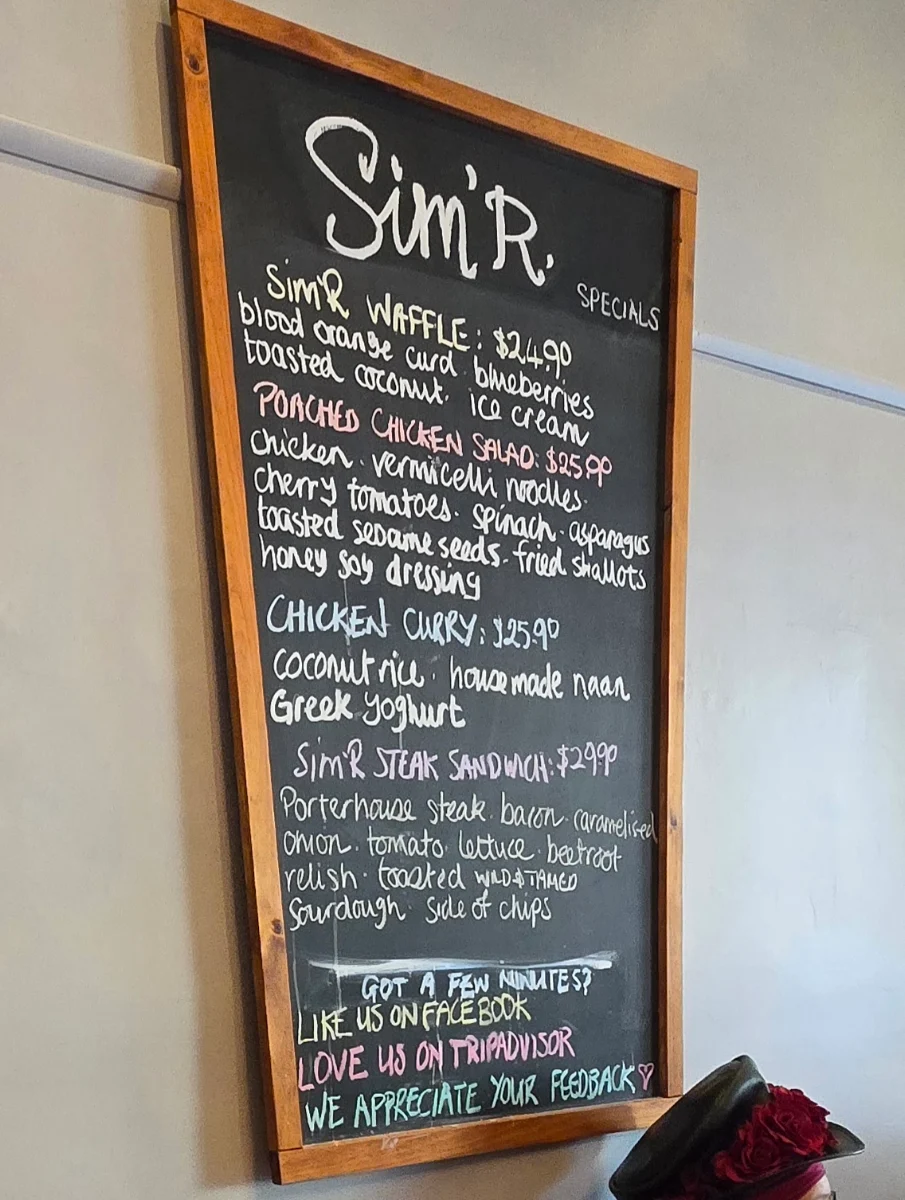 Sim'R.
SPECIALS
Sim'R WAFFLE: $24.90
blood orange curd. blueberries
toasted coconut. ice cream
POACHED CHICKEN SALAD: $25.90
chicken. vermicelli noodles.
cherry tomatoes. spinach. asparagus
toasted sesame seeds. fried shallots
honey soy dressing
CHICKEN CURRY: $25.90
coconut rice. housemade naan
Greek yoghurt
Sim'R STEAK SANDWICH: $29.90
Porterhouse steak. bacon. caramelised
onion. tomato. lettuce. beetroot
relish. toasted WILD & TAMED
sourdough. side of chips
GOT A FEW MINUTES?
LIKE US ON FACEBOOK
LOVE US ON TRIPADVISOR
WE APPRECIATE YOUR FEEDBACK ♡